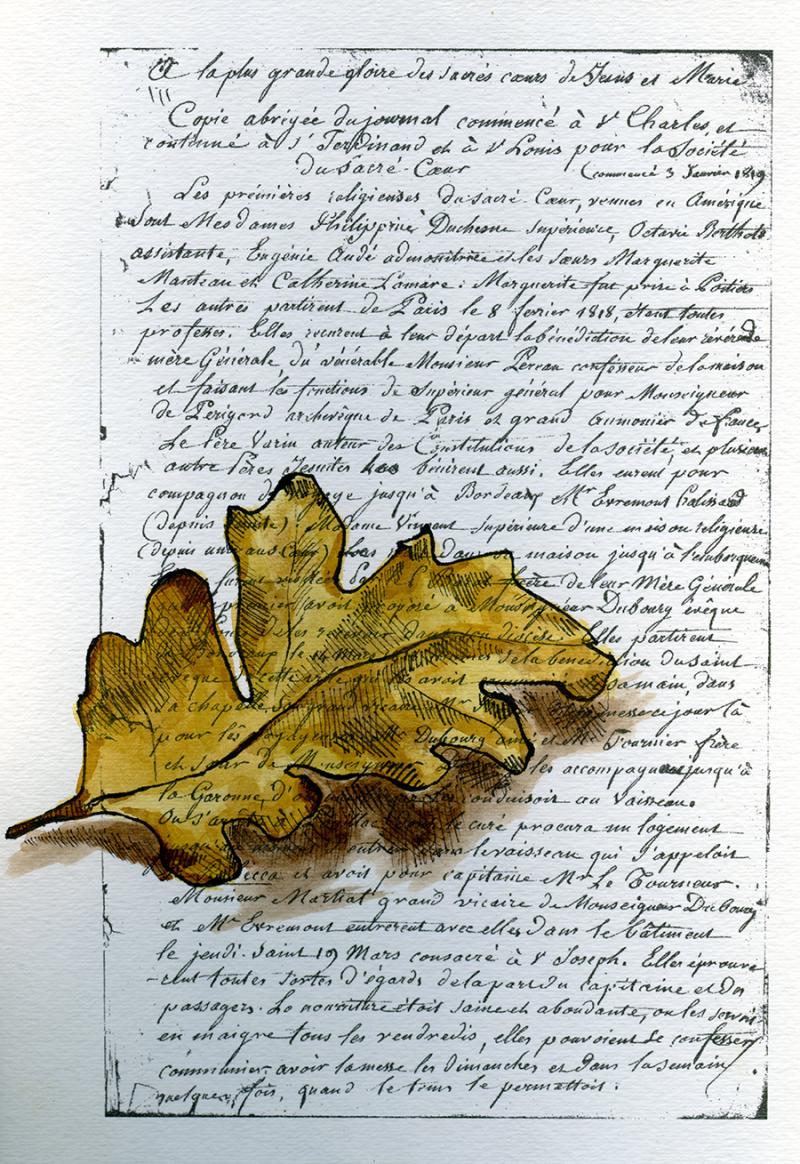 A la plus grande gloire des sacrés cœurs de Jésus et Marie
Copie abrigée du journal commencé à St Charles, et
continué à St Ferdinand et à St Louis pour la Société
du Sacré-Cœur
(commencé 3 Janvier 1819
Les premières religieuses du sacré-Cœur, venues en Amérique
sont Mesdames Philippine Duchesne supérieure, Octavie Berthold
assistante, Eugénie Audé admonitrice et les sœurs Marguerite
Manteau et Catherine Lamare : Marguerite fut prise à Poitiers
Les autres partirent de Paris le 8 fevrier 1818, étant toutes
professes. Elles reçurent à leur départ la bénédiction de leur révérende
mère Générale du vénérable Monsieur Perreau confesseur de la maison
et faisant les fonctions de Supérieur général pour Monseigneur
de Perigord archevêque de Paris et grand aumonier de france,
Le Père Varin auteur des Constitutions de la société, et plusieurs
autre Pères Jesuites les bénirent aussi. Elles eurent pour
compagnon de voyage jusqu'à Bordeaux Mr Evremont
(depuis Madame Vincent Supérieure d'une maison religieuse
(depuis unie au S Cœur) les dans maison jusqu'à l'embarquement
furent le frère de leur Mère Générale
premier avoit proposé à Monseigneur Dubourg évêque
de les recevoir dans son diocèse. Elles partirent
de Bordeaux le Mars de la bénédiction du Saint
avoit sa main, dans
sa chapelle Son grand vicaire Mr messe ce jour là
pour les voyageuses Mr Dubourg ainé et Mr Fournier frère
et sœur de Monseigneur les accompagna jusqu'à
la Garonne, d'où conduisoit au Vaisseau.
Où s'ar le curé procura un logement
dans le vaisseau qui s'appeloit
Rebecca et avoit pour capitaine Mr Le Tourneur.
Monsieur Martial grand vicaire de Monseigneur Dubourg
et Mr Evremont entrerent avec elles dans le bâtiment
le jeudi-Saint 19 Mars consacré à St Joseph. Elles éprouve-
-rent toutes sortes d'égards de la part du capitaine et des
passagers. La nourriture étoit saine et abondante, on les servoit
en maigre tous les vendredis, elles pouvoient se confesser,
communier, avoir la messe les Dimanches et dans la semaine
quelque fois, quand le tems le permettoit.